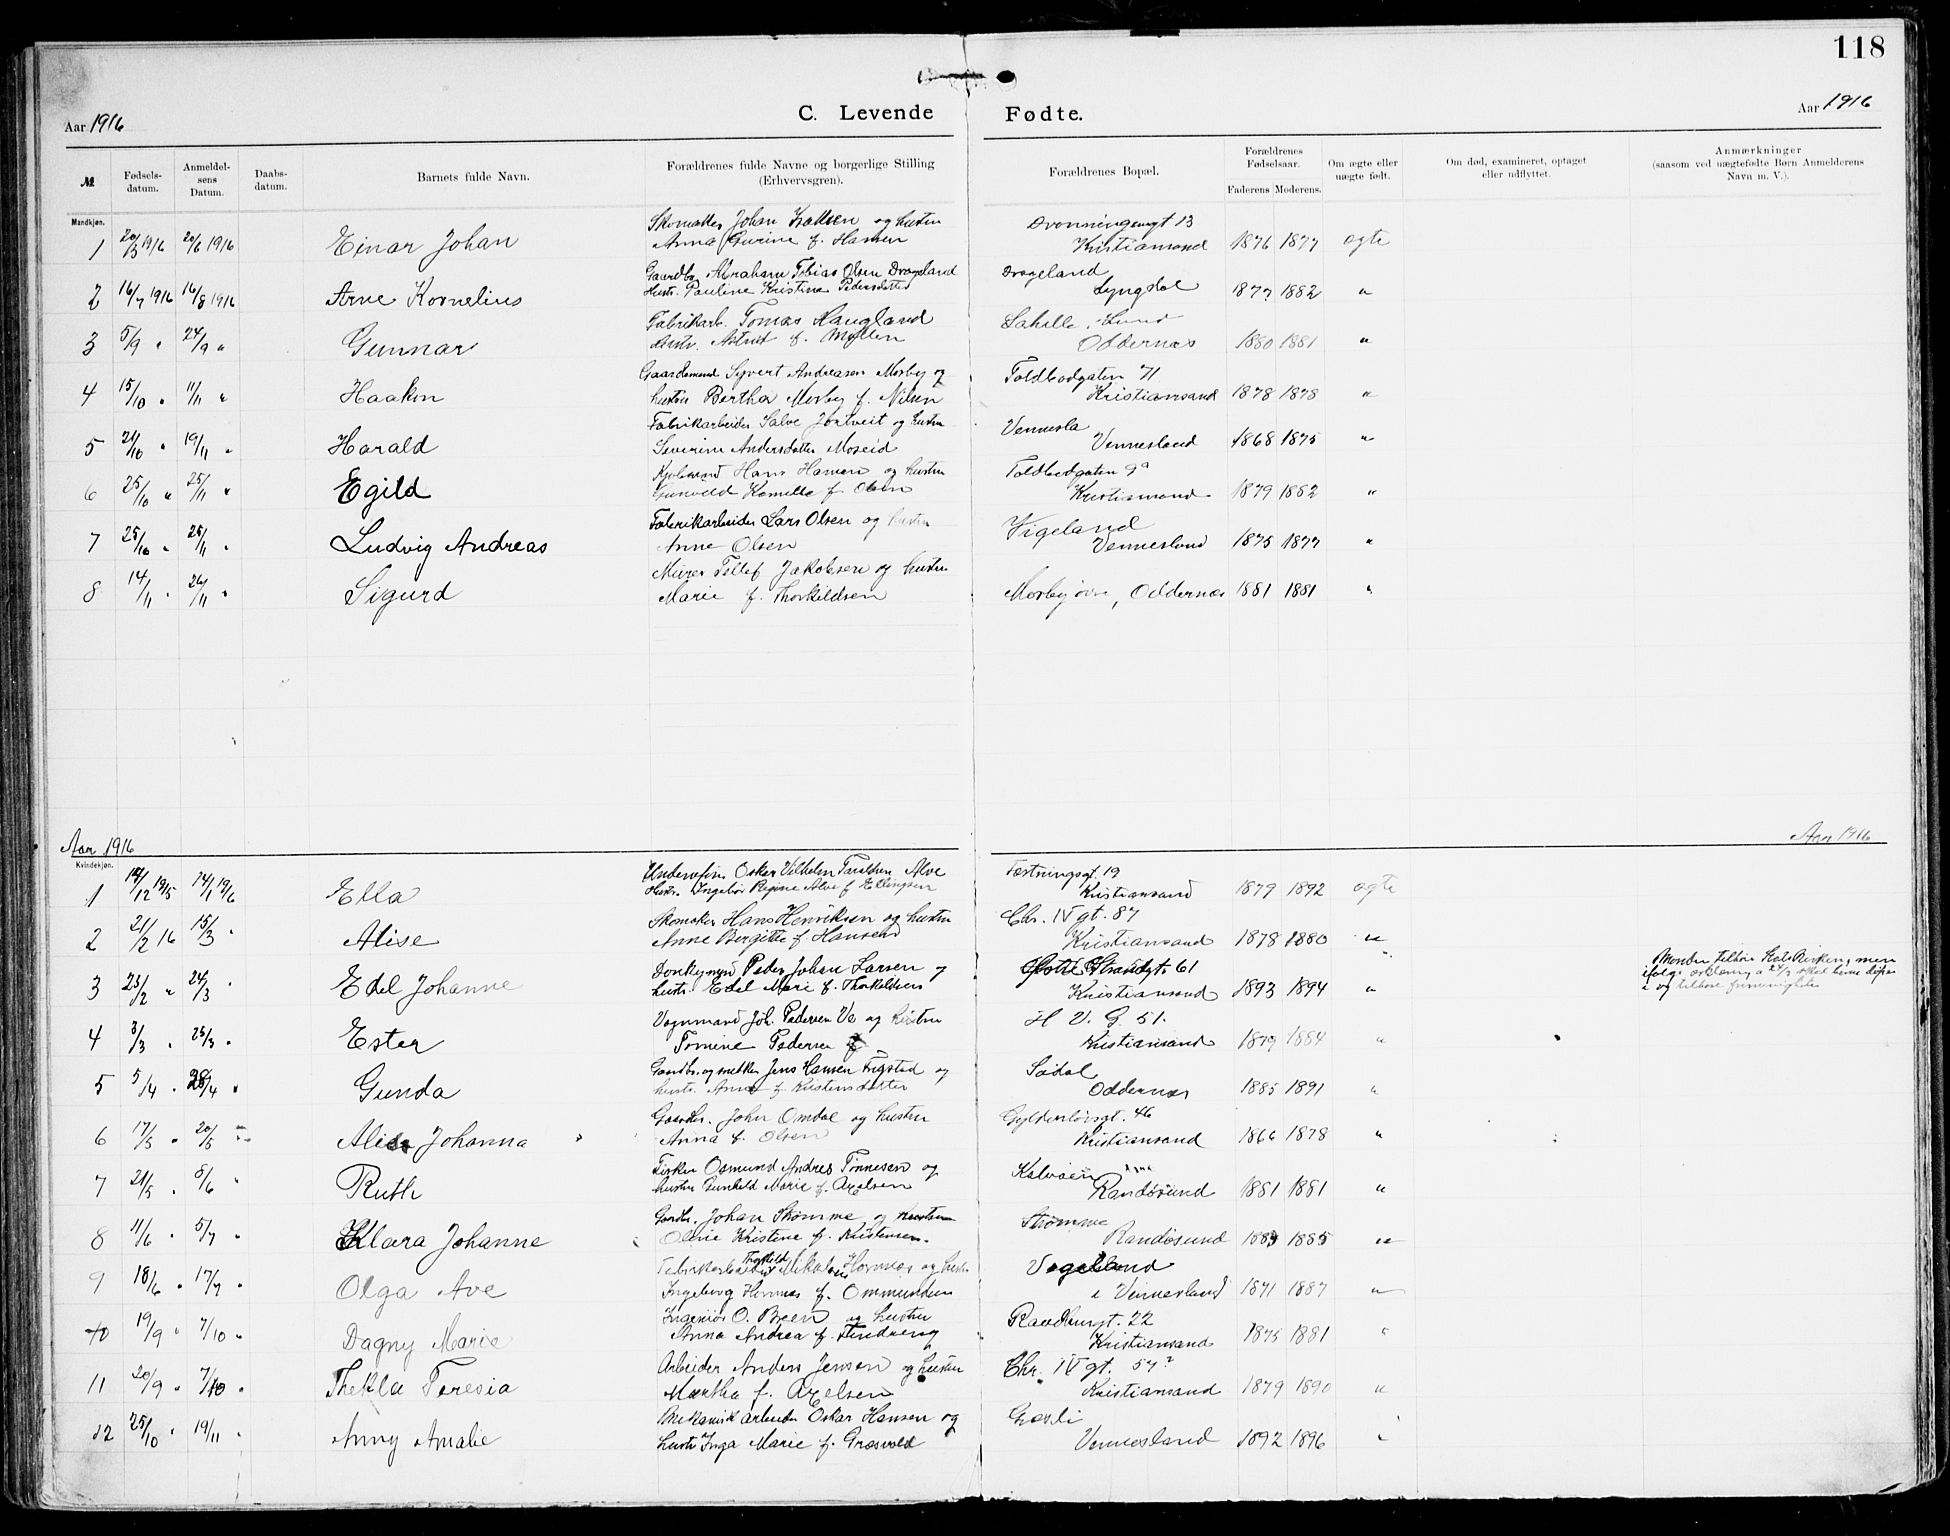 118
Aar 1916 C. Levende Fødte. Aar 1916
№ Fødsels-datum. Anmeldel-sens Datum. Daabs-datum. Barnets fulde Navn. Forældrenes fulde Navne og borgerlige Stilling (Erhvervsgren). Forældrenes Bopæl. Forældrenes Fødselsaar. Faderens Moderens. Om ægte eller uægte født. Om død, examineret, optaget eller udflyttet. Anmærkninger (saasom ved uægtefødte Børn Anmelderens Navn m. V.).
Mandkjøn.
Skomaker Johan og hustru Dronningensgt 13
1 1916 20/6 1916 Einar Johan Anna Gurine f. Hansen Kristiansand 1876 1877 ægte
Gaardbr. Abraham Tobias Olsen Drageland Drageland
2 16/7 1916 16/8 1916 Arne Kornelius Hustr. Pauline Kristine Pedersdatter Lyngdal 1877 1882 "
Fabrikarb. Tomas Haugland Lund
3 5/9 " 24/9 " Gunnar Astrid f. Oddernæs 1880 1881 "
Gaardsmand Syvert Andreasen Mosby og Toldbodgaten 71
4 15/10 " 11/11 " Haakon hustru Bertha Mosby f. Nilsen Kristiansand 1878 1878 "
Fabrikarbeider Salve og hustru Vennesla
5 21/10 " 19/11 " Harald Severine Andersdatter Moseid Vennesland 1868 1875 "
Hans Hansen og hustru Toldbodgaten 9a
6 25/10 " 25/11 " Egild Gunvald Kamilla f. Olsen Kristiansand 1879 1882 "
Fabrikarbeider Lars Olsen og hustru Vigeland
7 25/10 " 25/11 " Ludvig Andreas Anne Olsen Vennesland 1875 1877 "
Murer Tellef Jakobsen og hustru
8 14/11 " 26/11 " Sigurd Marie f. Thorkildsen Mosby øvre, Oddernæs 1881 1881 "
Aar 1916 Aar 1916
Kvindekjøn.
Oskar Vilhelm Alve Festningsgt. 19
1 /12 1915 14/1 1916 Ella Hustr. Ingebor Regine Alve f. Ellingsen Kristiansand 1879 1892 ægte
Skomaker Hans Henriksen og hustru Chr. IV gt. 87
2 21/2 16 15/3 " Alise Anne Bergitte f. Hansen Kristiansand 1878 1880 "
Donkeymand Peder Johan Larsen og Strandgt. 61
3 23/2 " 24/3 " Edel Johanne hustr. Edel Marie f. Thorkildsen Kristiansand 1893 1894 "
Vognmand Joh. Pedersen Ve og hustru H. V. G. 51.
4 3/3 " 25/3 " Ester Tomine Pedersen Kristiansand 1879 1884 "
Gaardbr. og snekker Jens Hansen Frigstad og Sødal
5 5/4 " 28/4 " Gunda hustr. Anne f. Kristensdatter Oddernæs 1885 1891 "
Gaardbr. John Omdal og hustru Gyldenløvsgt. 46
6 17/5 " 20/5 Johanna Anna f. Olsen Kristiansand 1866 1878 "
Fisker Osmund Andres Tønnesen og
7 21/5 " 8/6 " Ruth hustru Gunhild Marie f. Axelsen Randøsund 1881 1881 "
Gaardbr. Johan Strømme og hustru Strømme
8 11/6 " 5/7 " Klara Johanne Olevie Kristine f. Kristensen. Randøsund 1885 "
Fabrikarbeider Hornnes og hustr.
9 18/6 " 17/7 " Olga Ave Ingeborg Hornnes f. Ommundsen i Vennesland 1871 1887 "
Ingeniør O. Been og hustru Raadhusgt. 22
10 19/9 " 7/10 " Dagny Marie Anna Andrea f. Kristiansand 1875 1881 "
Arbeider Anders Jensen og hustru Chr. IV gt. 57
11 20/9 " 7/10 " Thekla Teresia Martha f. Axelsen Kristiansand 1879 1890 "
Mekanisk arbeider Oskar Hansen og
12 25/10 " 19/11 " Anny Amalie hustr Inga Marie f. Græsvold Vennesland 1892 1896 "